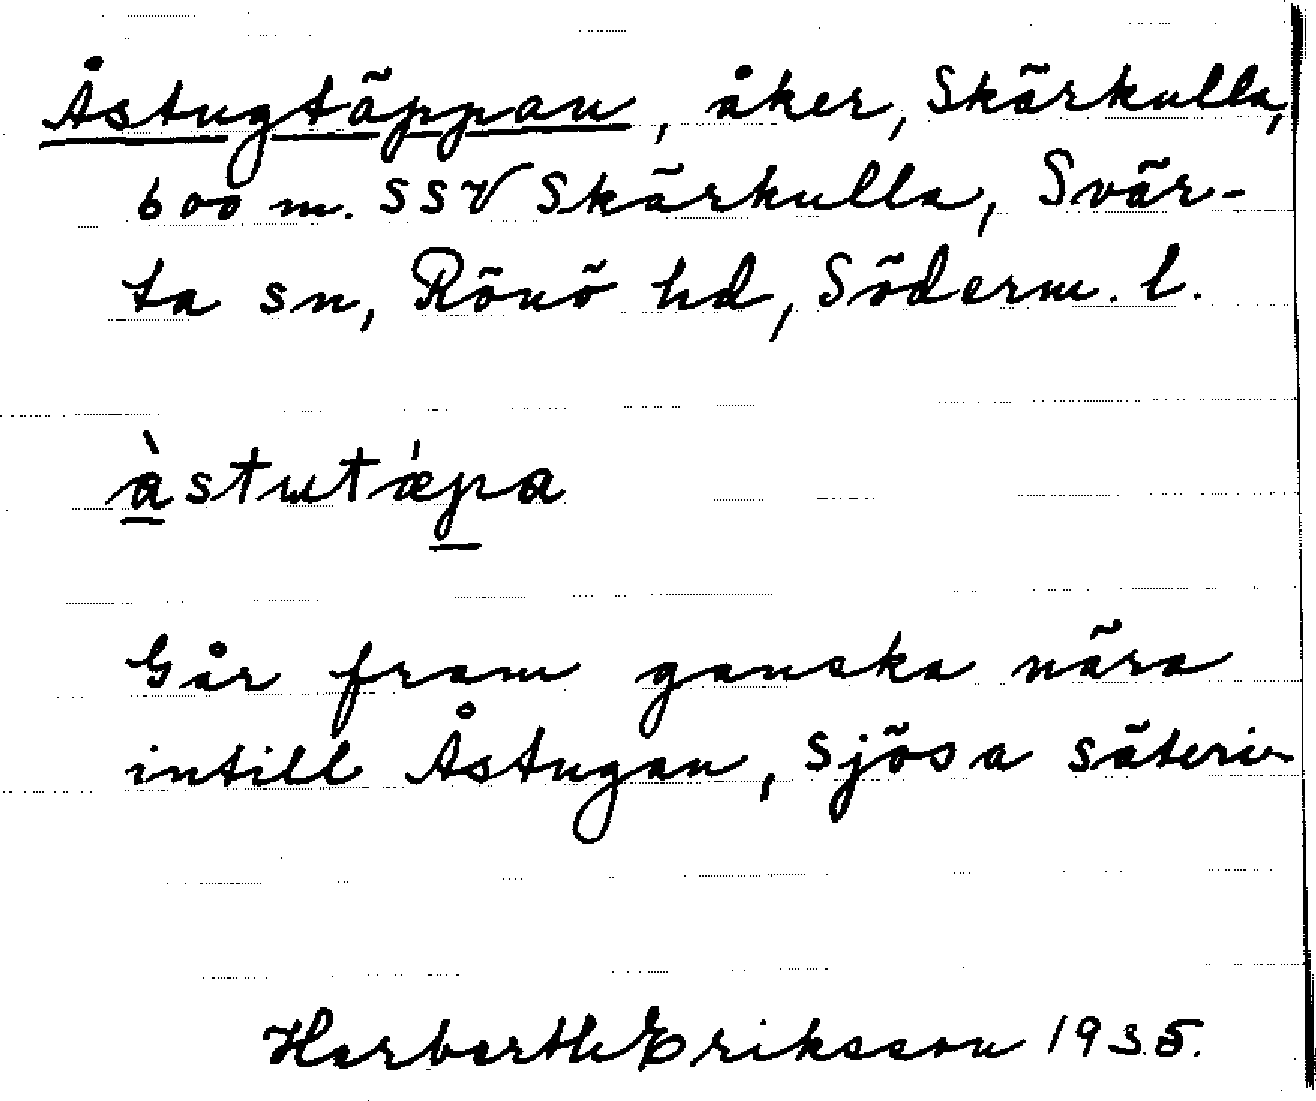 Åstugtäppan, åker, Skärkulla,
600 m. SSV Skärkulla, Svär-
ta sn, Rönö hd, Söderm. l.
àstutǽpa
Går fram ganska nära
intill Åstugan, Sjösa säteri
Herbert Eriksson 1935.